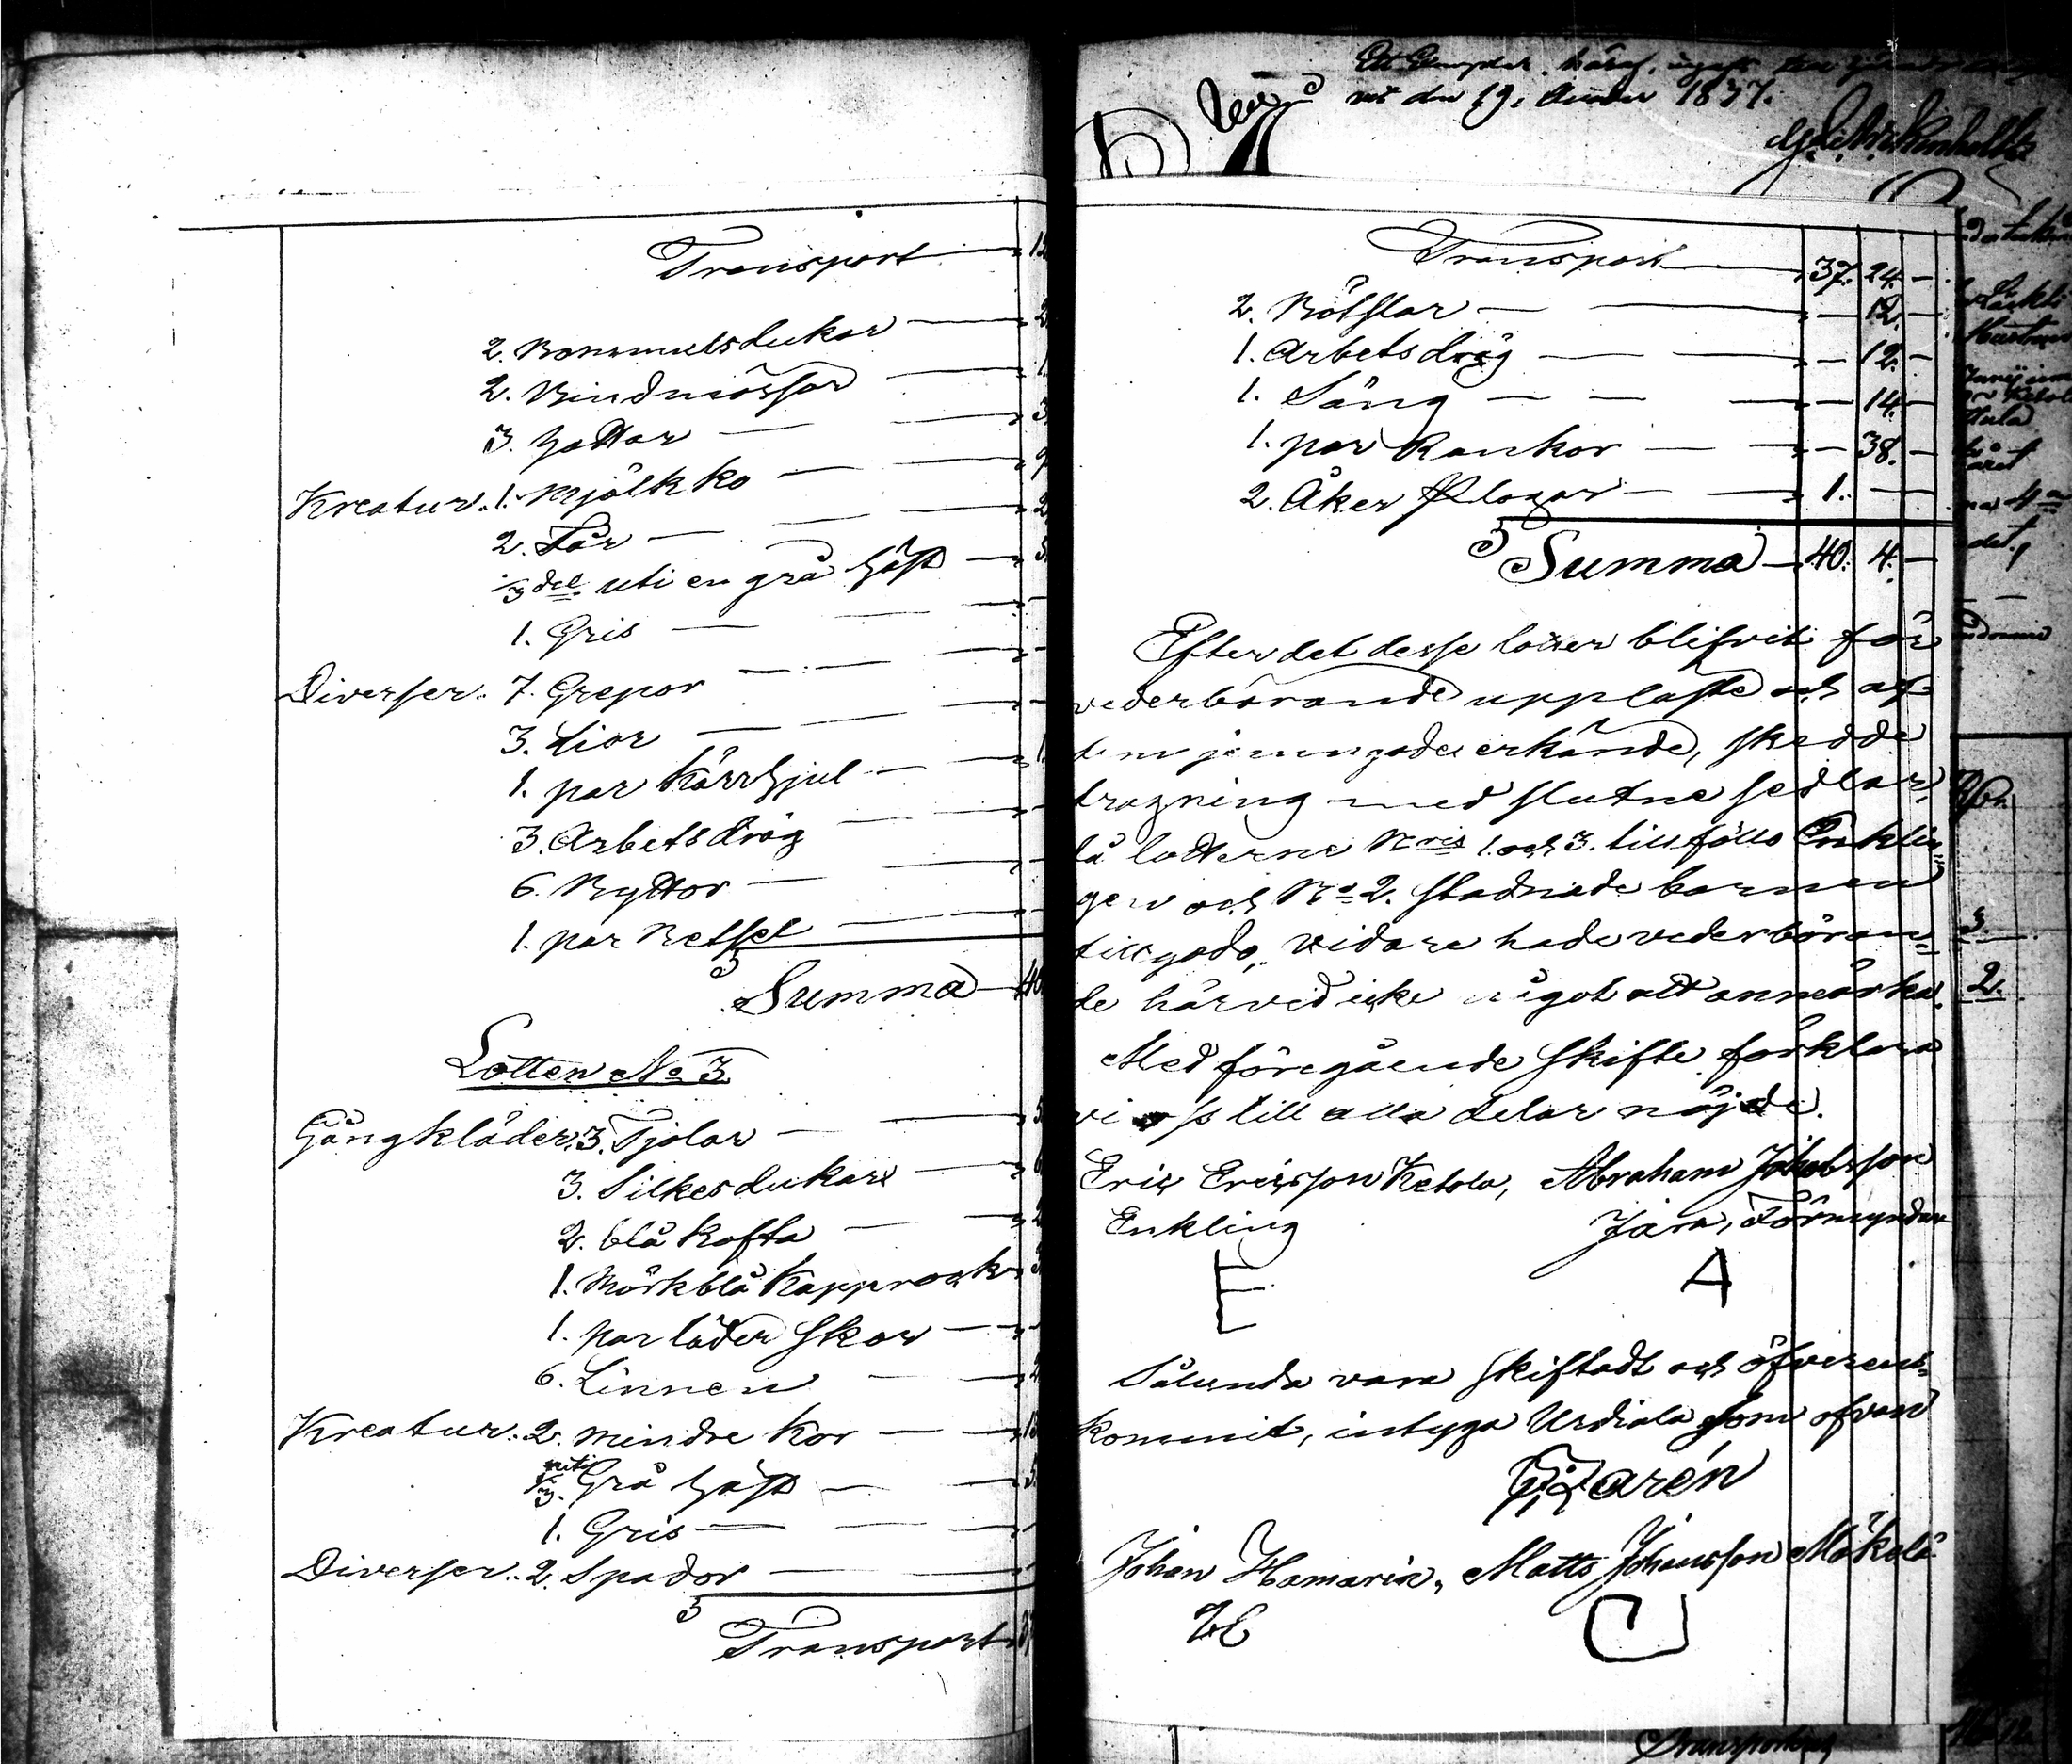 Transport — 12
2. Bommulsdukar — 2
2. Bindmössor — 1
3. Hattar — 3
Kreatur. 1. Mjölkko — 9
2. Får — 2
⅓ del uti en grå häst — 5
1. Gris —
Diverser. 7. Grepor —
3. Lior —
1. par Kärrhjul — 1
3. Arbetsdräg
6. Byttor —
1. par Betsel —
Summa — 40
Lotten No 3.
Gångkläder. 3. Tjolar — 5
3. Silkesdukar — 6
2. blå Kofta — 2
1. Mörkblå Kapprock 3
1. par läder skor —
6. Linnen —
Kreatur. 2. mindre Kor — 15
⅓ uti Grå häst — 5
1. Gris —
Diverser. 2. Spador —
Transport 37
vit den 19. 1837.
Transport — 37. 24. —
2. Bötslar — — 12. —
1. Arbetsdräg — — 12. —
1. Säng — — 14. —
1. par Rankor — — 38. —
2. Åker Plogar — 1. —
Summa — 40. 4. —
Efter det desse lotter blifvit för
vederbörande upplästa och af
dem jemngoda erkände, skedde
dragning med slutne sedlar,
då lotterne Nris 1. och 3. tillföllo Enklin-
gen och No 2. stadnade barnen
tillgodo, vidare hade vederböran-
de härvid icke något att anmärka.
Med föregående skifte förklara
vi oss till alla delar nöjde.
Eric Ericsson Ketola, Abraham Jakobsson
Enkling Jara, Förmyndare
E A
Sålunda vara skiftadt och öfverens-
kommit, intyga Urdiala som ofvan
Johan Hamarin, Matts Johansson Mäkelä